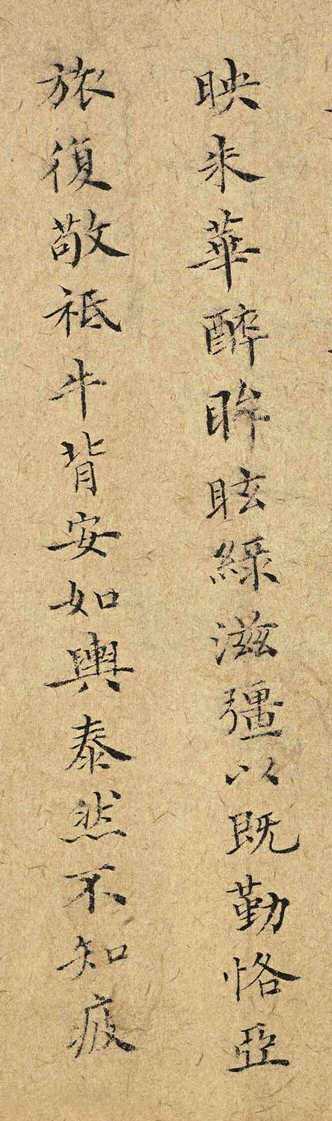 映朱華醉眸眩綠滋彊以既勤恪亞
旅復敬祗牛背安如輿泰然不知疲